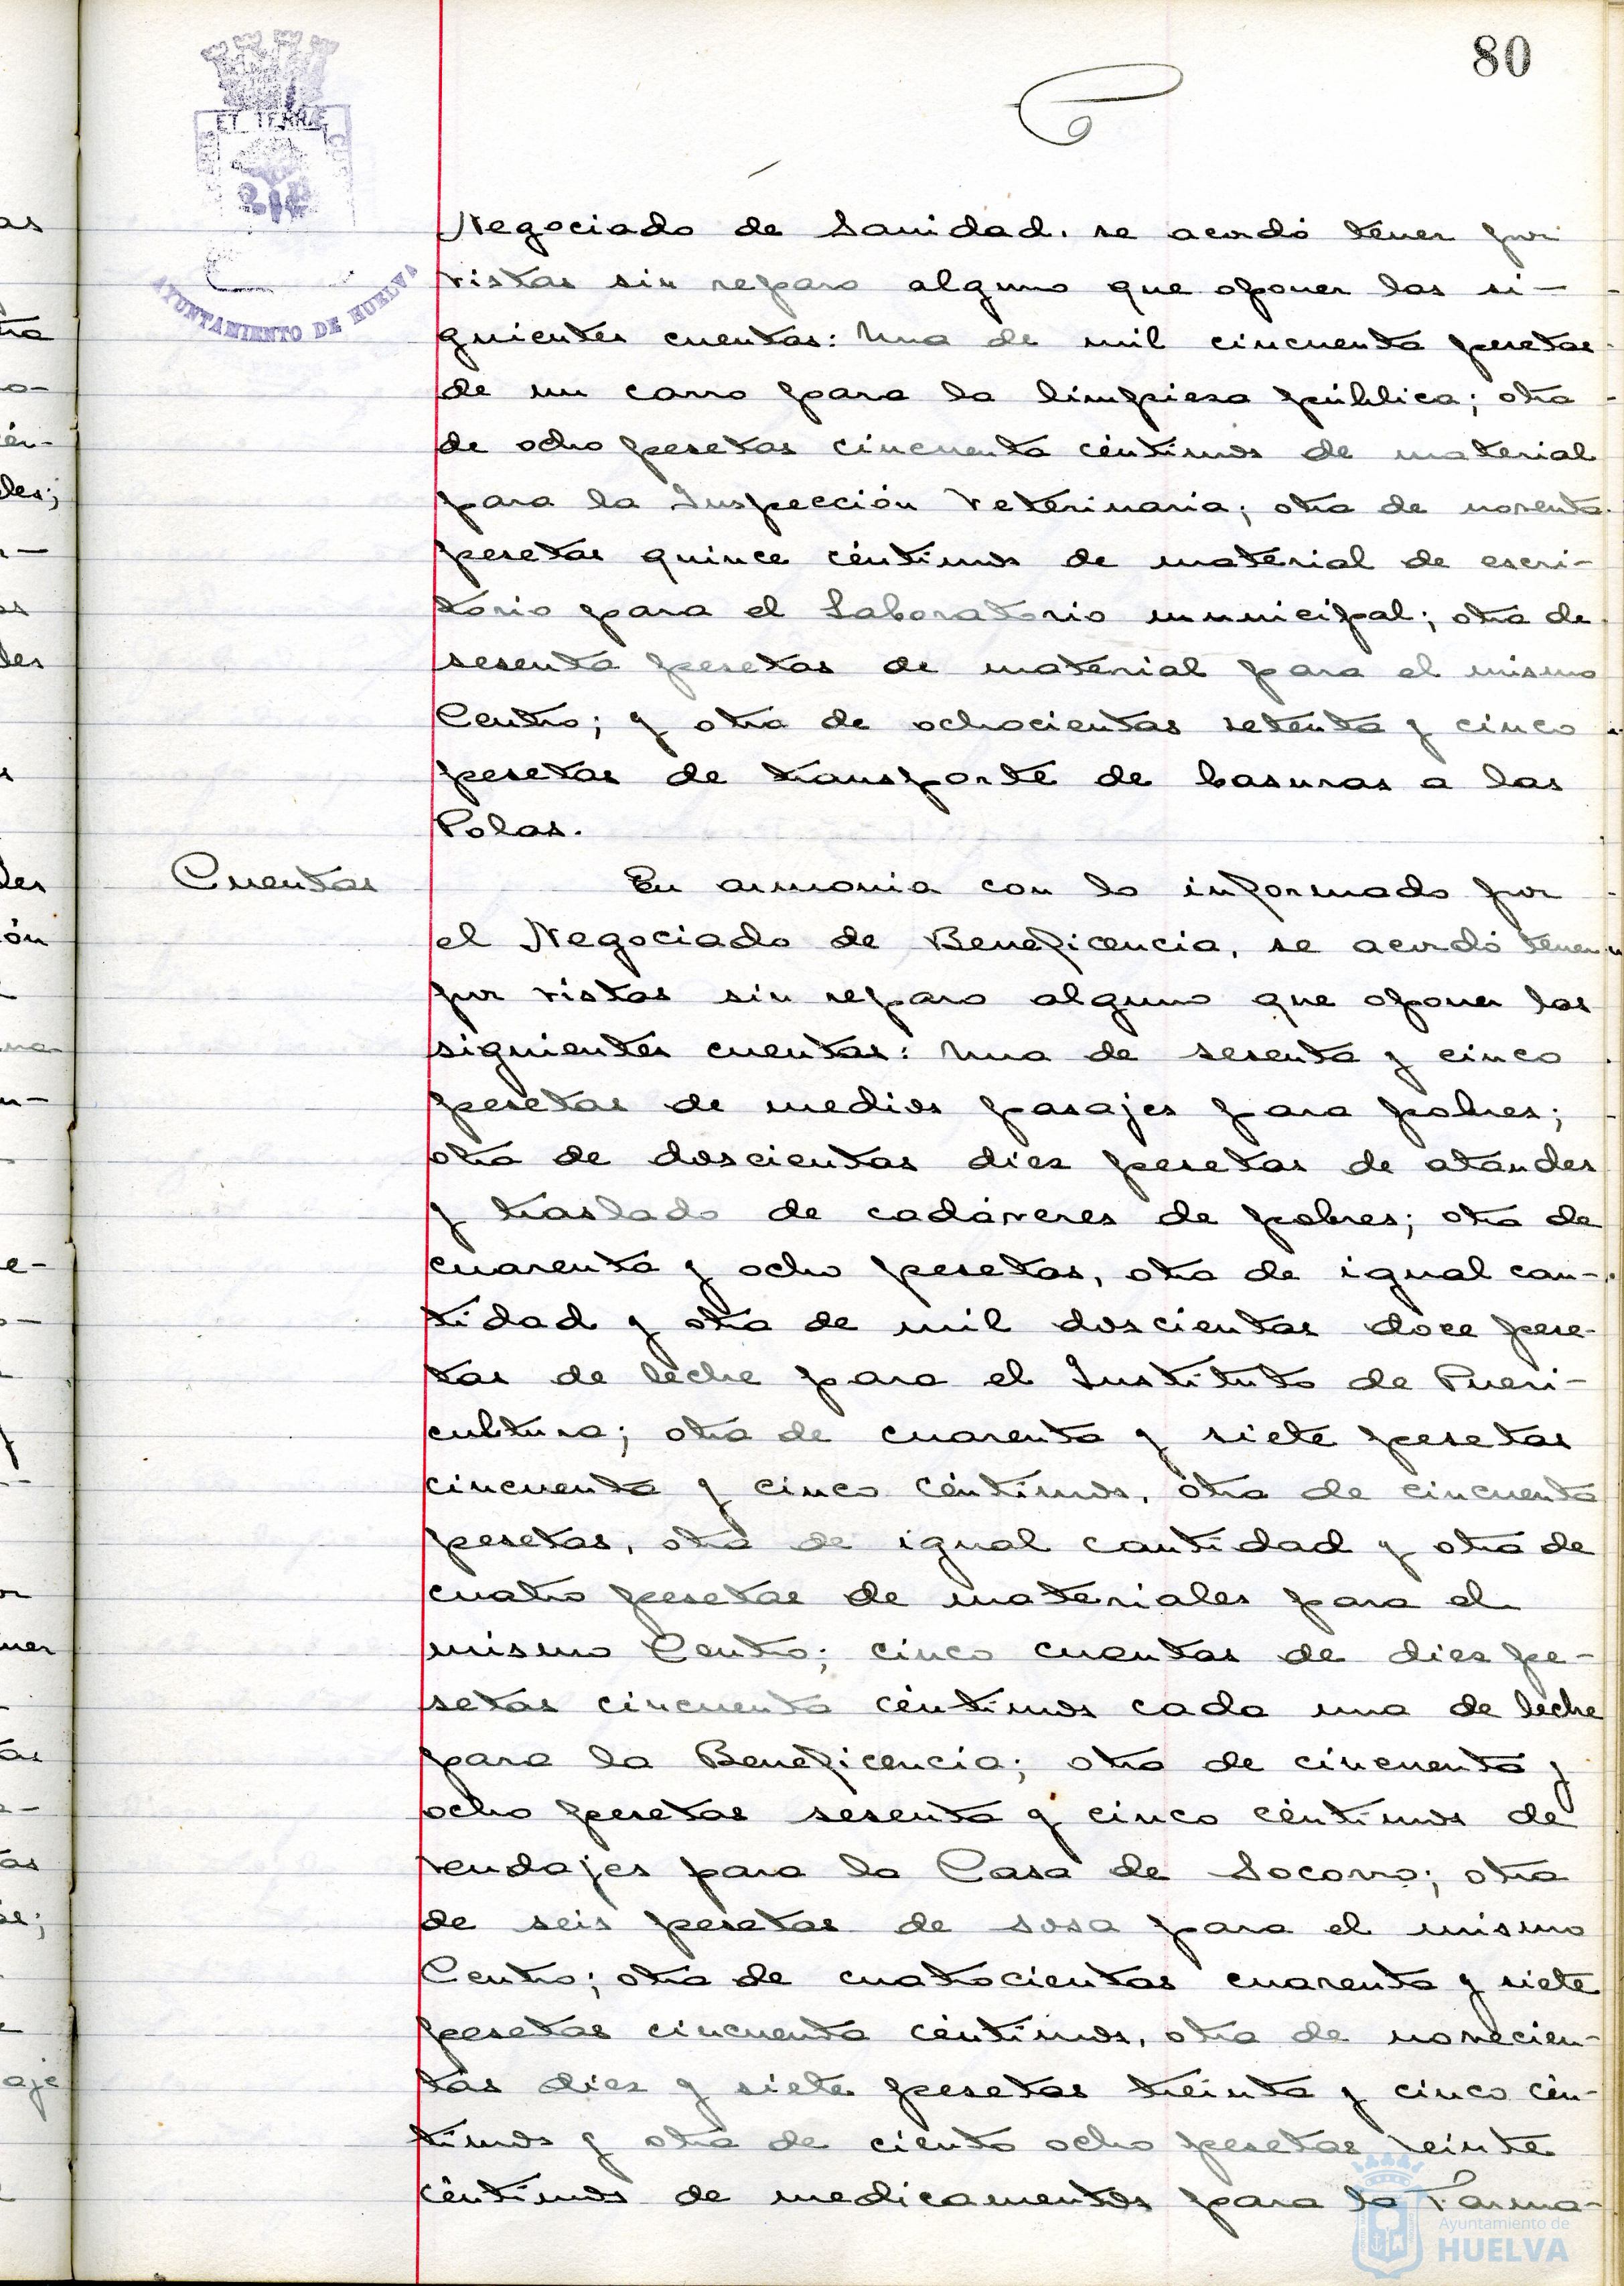 80
ET TERRÆ
AYUNTAMIENTO DE HUELVA
Negociado de Sanidad, se acordó tener por
vistas sin reparo alguno que oponer las si-
guientes cuentas: Una de mil cincuenta pesetas
de un carro para la limpieza pública; otra
de ocho pesetas cincuenta céntimos de material
para la Inspección Veterinaria; otra de noventa
pesetas quince céntimos de material de escri-
torio para el Laboratorio municipal; otra de
sesenta pesetas de material para el mismo
Centro; y otra de ochocientas setenta y cinco
pesetas de transporte de basuras a las
Polas.
Cuentas
En armonia con lo informado por
el Negociado de Beneficencia, se acordó tener
por vistas sin reparo alguno que oponer las
siguientes cuentas: Una de sesenta y cinco
pesetas de medios pasajes para pobres;
otra de doscientas diez pesetas de ataudes
y traslado de cadáveres de pobres; otra de
cuarenta y ocho pesetas, otra de igual can-
tidad y otra de mil doscientas doce pese-
tas de leche para el Instituto de Pueri-
cultura; otra de cuarenta y siete pesetas
cincuenta y cinco céntimos, otra de cincuenta
pesetas, otra de igual cantidad y otra de
cuatro pesetas de materiales para el
mismo Centro; cinco cuentas de diez pe-
setas cincuenta céntimos cada una de leche
para la Beneficencia; otra de cincuenta y
ocho pesetas sesenta y cinco céntimos de
vendajes para la Casa de Socorro; otra
de seis pesetas de sosa para el mismo
Centro; otra de cuatrocientas cuarenta y siete
pesetas cincuenta céntimos, otra de novecien-
tas diez y siete pesetas treinta y cinco cén-
timos y otra de ciento ocho pesetas veinte
céntimos de medicamentos para la Farma-
Ayuntamiento de
HUELVA